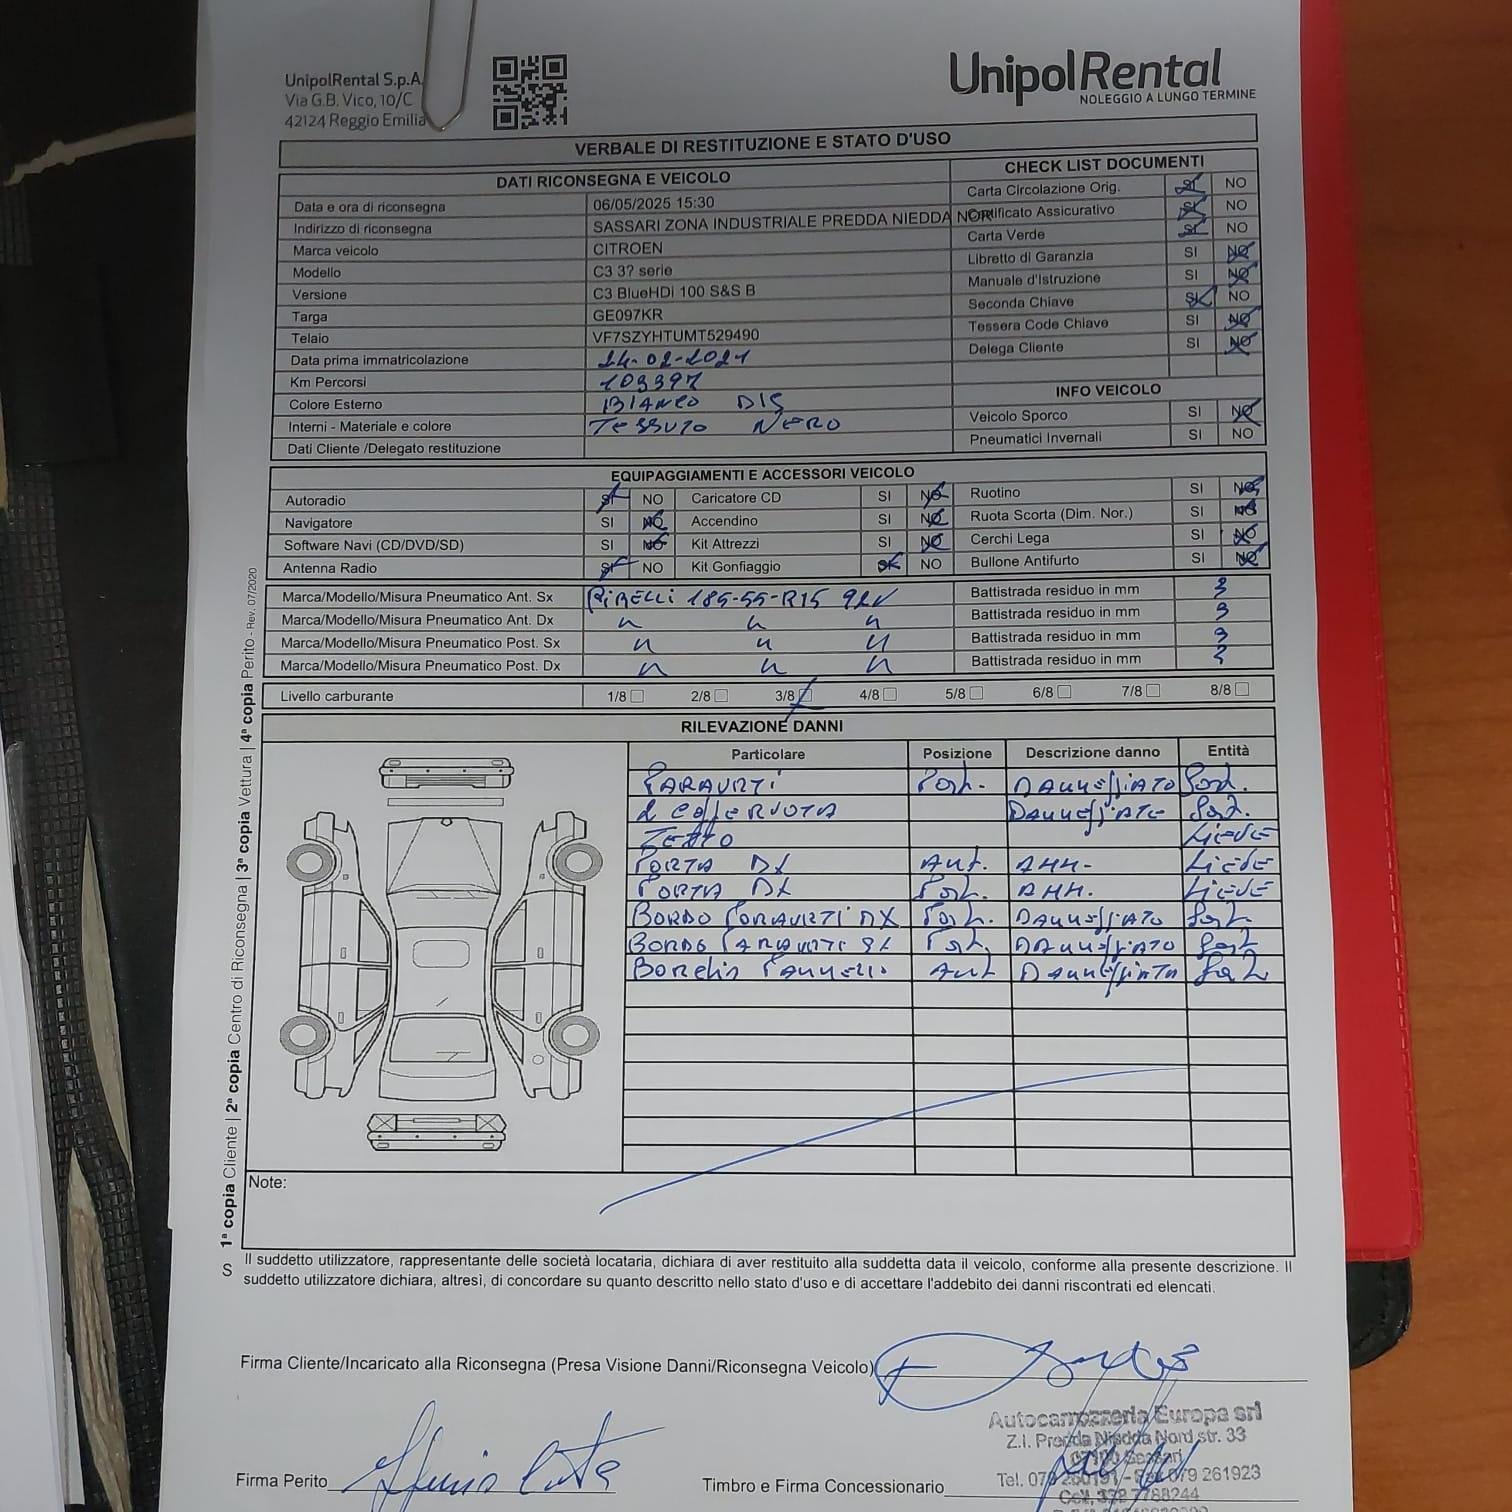 UnipolRental S.p.A.
Via G.B. Vico, 10/C
42124 Reggio Emilia
UnipolRental
NOLEGGIO A LUNGO TERMINE
VERBALE DI RESTITUZIONE E STATO D'USO
DATI RICONSEGNA E VEICOLO
Data e ora di riconsegna 06/05/2025 15:30
Indirizzo di riconsegna SASSARI ZONA INDUSTRIALE PREDDA NIEDDA NOR
Marca veicolo CITROEN
Modello C3 3? serie
Versione C3 BlueHDi 100 S&S B
Targa GE097KR
Telaio VF7SZYHTUMT529490
Data prima immatricolazione 24-02-2021
Km Percorsi 103397
Colore Esterno BIANCO
Interni - Materiale e colore TESSUTO NERO
Dati Cliente /Delegato restituzione
CHECK LIST DOCUMENTI
Carta Circolazione Orig. SI NO
Certificato Assicurativo SI NO
Carta Verde SI NO
Libretto di Garanzia SI NO
Manuale d'Istruzione SI NO
Seconda Chiave SI NO
Tessera Code Chiave SI NO
Delega Cliente SI NO
INFO VEICOLO
Veicolo Sporco SI NO
Pneumatici Invernali SI NO
EQUIPAGGIAMENTI E ACCESSORI VEICOLO
Autoradio SI NO Caricatore CD SI NO Ruotino SI NO
Navigatore SI NO Accendino SI NO Ruota Scorta (Dim. Nor.) SI NO
Software Navi (CD/DVD/SD) SI NO Kit Attrezzi SI NO Cerchi Lega SI NO
Antenna Radio SI NO Kit Gonfiaggio SI NO Bullone Antifurto SI NO
Marca/Modello/Misura Pneumatico Ant. Sx PIRELLI 185-55-R15 Battistrada residuo in mm 3
Marca/Modello/Misura Pneumatico Ant. Dx " " " Battistrada residuo in mm 3
Marca/Modello/Misura Pneumatico Post. Sx " " " Battistrada residuo in mm 3
Marca/Modello/Misura Pneumatico Post. Dx " " " Battistrada residuo in mm
Livello carburante 1/8 2/8 3/8 4/8 5/8 6/8 7/8 8/8
RILEVAZIONE DANNI
Particolare Posizione Descrizione danno Entità
PARAURTI Post. DANNEGGIATO Sost.
DANNEGGIATE Sost.
TETTO LIEVE
PORTA DX Ant. AMM. LIEVE
PORTA DX Post. AMM. LIEVE
BORDO PARAURTI DX Post. DANNEGGIATO Sost.
BORDO PARAURTI SX Post. DANNEGGIATO Sost.
Ant DANNEGGIATO Sost.
Note:
1ª copia Cliente | 2ª copia Centro di Riconsegna | 3ª copia Vettura | 4ª copia Perito - Rev. 07/2020
S
Il suddetto utilizzatore, rappresentante delle società locataria, dichiara di aver restituito alla suddetta data il veicolo, conforme alla presente descrizione. Il
suddetto utilizzatore dichiara, altresì, di concordare su quanto descritto nello stato d'uso e di accettare l'addebito dei danni riscontrati ed elencati.
Firma Cliente/Incaricato alla Riconsegna (Presa Visione Danni/Riconsegna Veicolo)
Firma Perito
Timbro e Firma Concessionario
Autocarrozzeria Europa srl
Z.I. Predda Niedda Nord str. 33
07100 Sassari
Tel. 079 260191 - Fax 079 261923